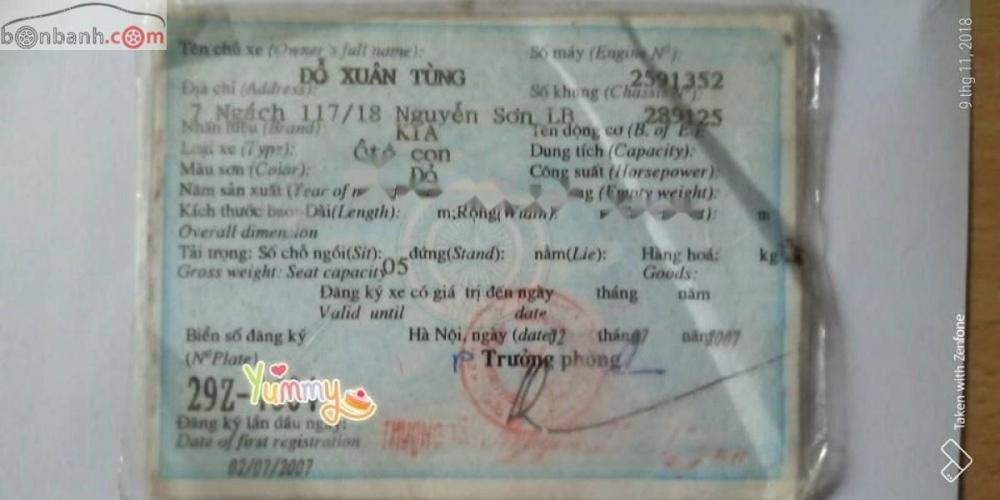 bonbanh.com
Tên chủ xe (Owner's full name):
ĐỖ XUÂN TÙNG
Địa chỉ (Address):
7 Ngách 117/18 Nguyễn Sơn LB
Nhãn hiệu (Brand)
KIA
Loại xe (Type):
Ôtô con
Màu sơn (Color):
Đỏ
Năm sản xuất (Year of
Kích thước bao: Dài(Length): m;Rộng(Width):
m
Overall dimension
Số máy (Engine Nº):
2591352
Số khung (Chassis Nº):
289125
Tên động cơ (B. of E.)
Dung tích (Capacity):
Công suất (Horsepower):
(Empty weight):
Tải trọng: Số chỗ ngồi(Sit): đứng(Stand): nằm(Lie): Hàng hoá: kg
Gross weight: Seat capacity 05 Goods:
Đăng ký xe có giá trị đến ngày tháng năm
Valid until date
Biển số đăng ký
(NºPlate)
29Z-
Yummy
Hà Nội, ngày (date) tháng 7 năm
Trưởng phòng
Đăng ký lần đầu ngày:
Date of first registration
02/07/2007
9 thg 11, 2018
Taken with Zenfone